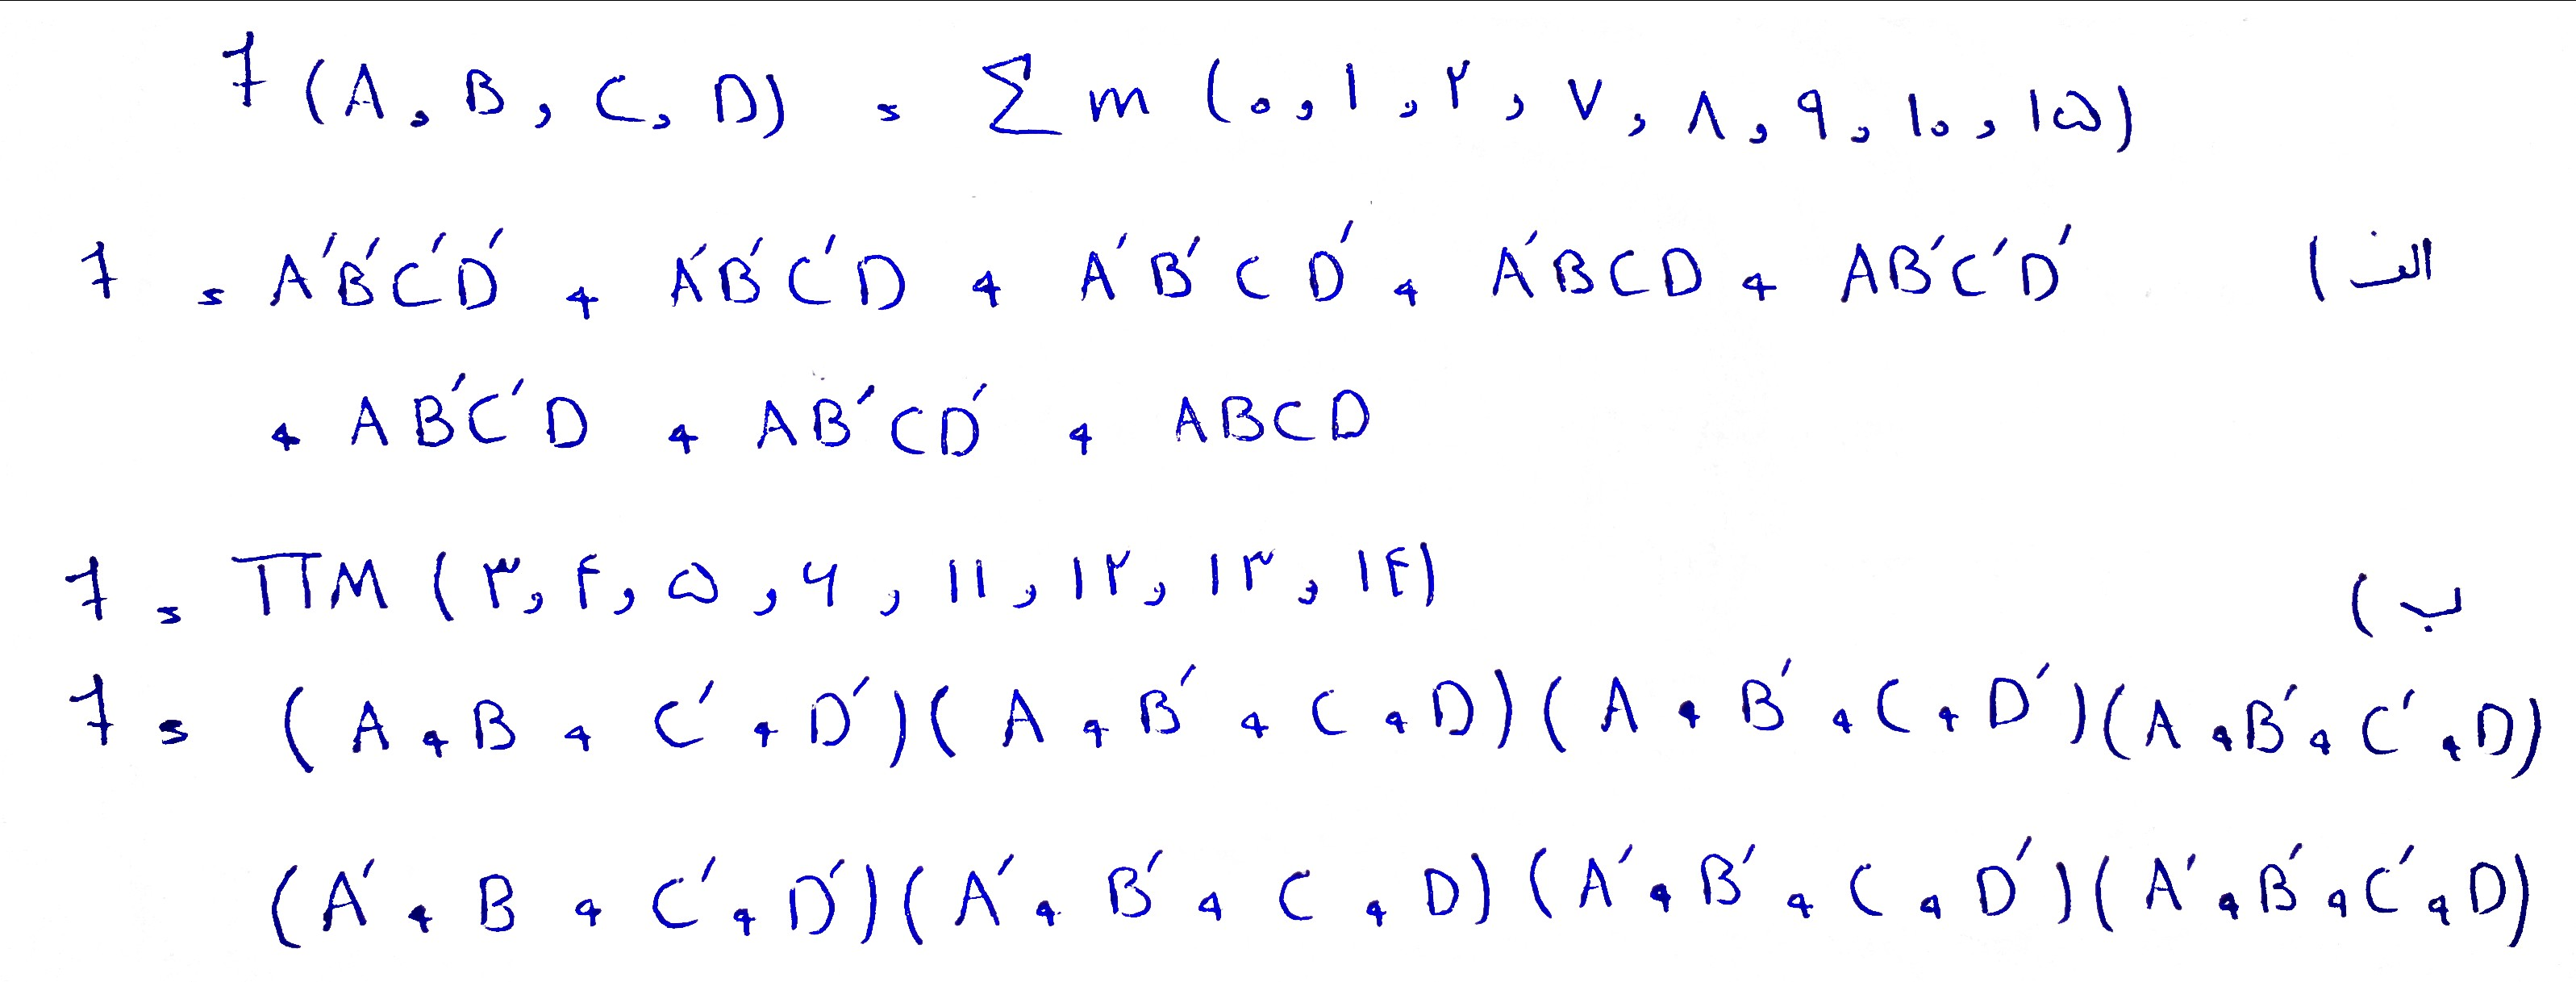 f (A, B, C, D) = Σ m (۰, ۱, ۲, ۷, ۸, ۹, ۱۰, ۱۵)
الف) f = A'B'C'D' + A'B'C'D + A'B'CD' + A'BCD + AB'C'D'
+ AB'C'D + AB'CD' + ABCD
ب) f = ΠM (۳, ۴, ۵, ۶, ۱۱, ۱۲, ۱۳, ۱۴)
f = (A + B + C' + D')(A + B' + C + D)(A + B' + C + D')(A + B' + C' + D)
(A' + B + C' + D')(A' + B' + C + D)(A' + B' + C + D')(A' + B' + C' + D)